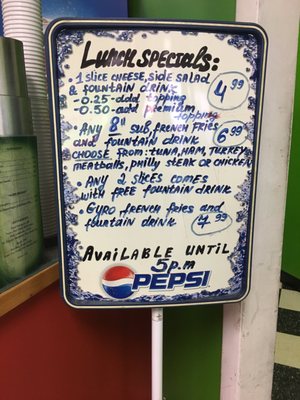 LUNCH SPECIALS:
• 1 SLICE CHEESE, SIDE SALAD
& FOUNTAIN DRINK 4.99
- 0.25 - add topping
- 0.50 - add premium
topping
• ANY 8" SUB, FRENCH FRIES 6.99
and fountain DRINK
CHOOSE FROM: TUNA, HAM, TURKEY
MEATBALLS, PHILLY STEAK OR CHICKEN
• ANY 2 SLICES COMES
WITH FREE FOUNTAIN DRINK
• GYRO FRENCH FRIES and
fountain DRINK 7.99
AVAILABLE UNTIL
5 p.m
PEPSI